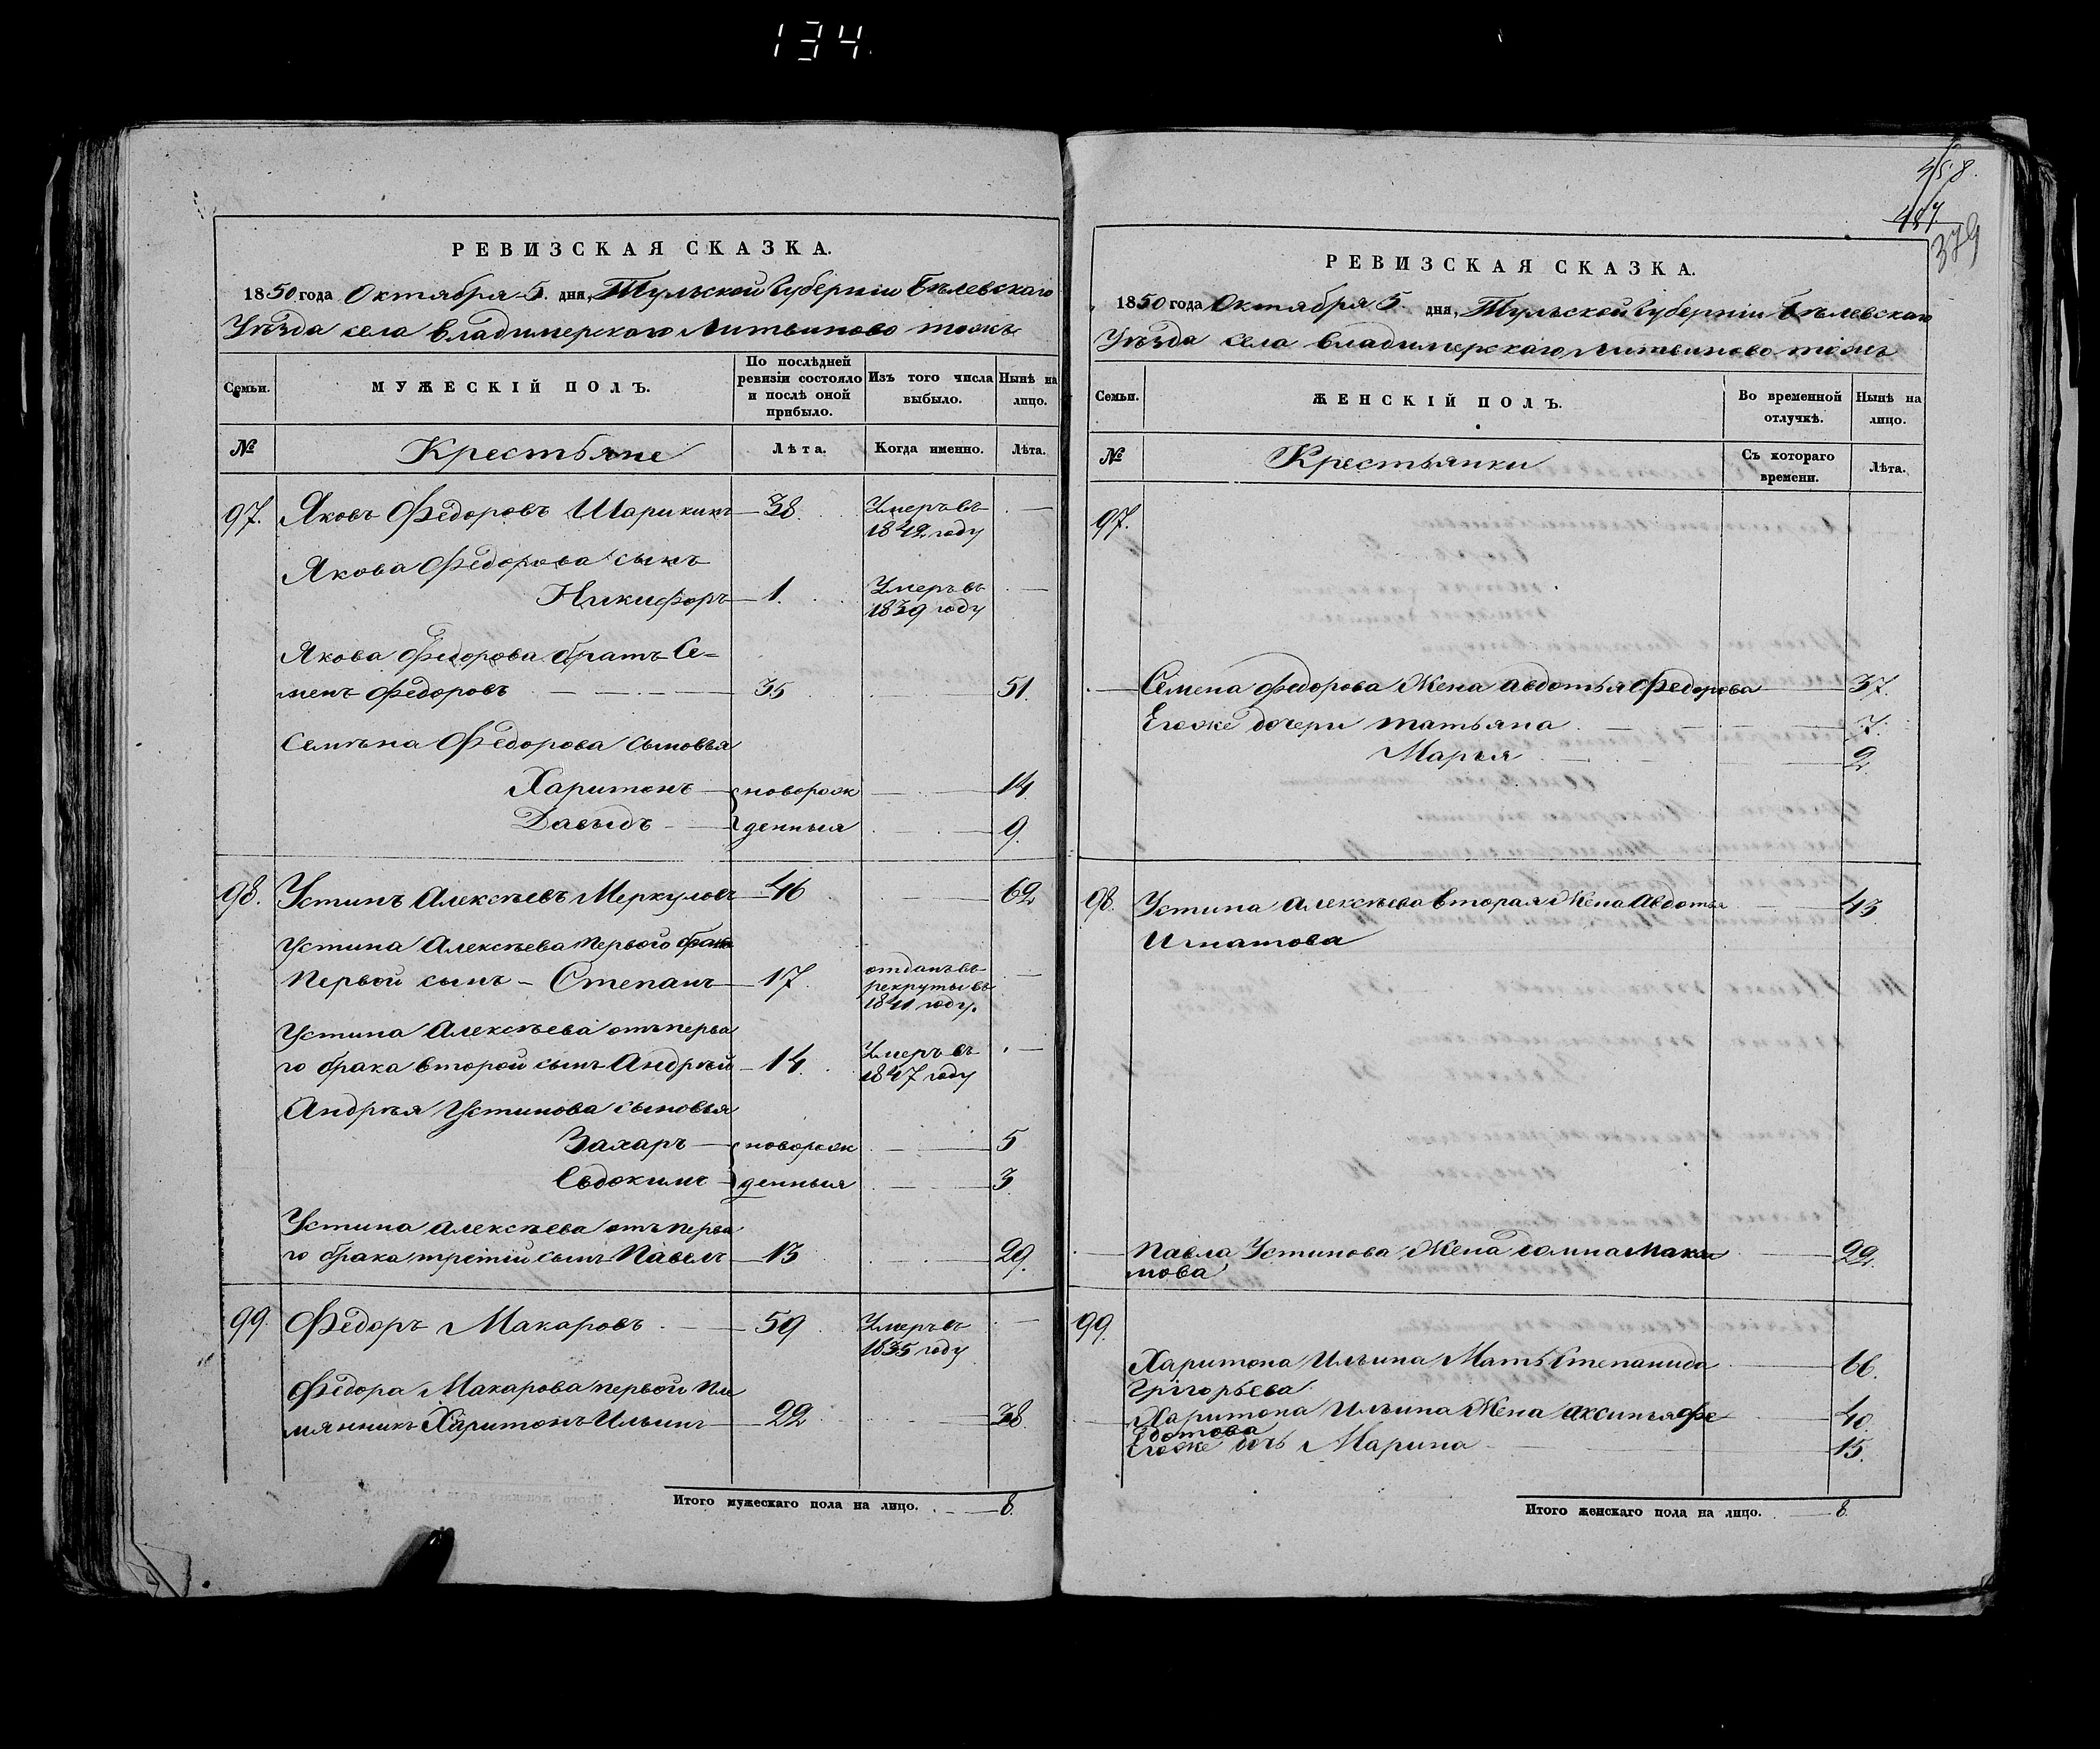 134.
РЕВИЗСКАЯ СКАЗКА.
1850 года Октября 5. дня, Тульской Губерніи Бѣлевскаго
Уѣзда села Владимерскаго Литвиново тожъ
Семьи.
МУЖЕСКІЙ ПОЛЪ.
По послѣдней ревизіи состояло и послѣ оной прибыло.
Изъ того числа выбыло.
Нынѣ на лицо.
№
Крестьяне
Лѣта.
Когда именно.
Лѣта.
97. Яковъ Федоровъ Шарикинъ — 38. Умеръ въ 1842 году —
Якова Федорова сынъ
Никифоръ — 1. Умеръ въ 1839 году —
Якова Федорова братъ Се=
менъ Федоровъ — 35 51.
Семѣна Федорова сыновья
Харитонъ — новорож 14
Давыдъ — денныя 9.
98. Устинъ Алексѣевъ Меркуловъ — 46 — 62
Устина Алексѣева первого брака
Первой сынъ — Степанъ — 17. отданъ въ рекруты въ 1841 году. —
Устина Алексѣева отъ перва
го брака второй сынъ Андрѣй — 14. Умеръ въ 1847 году —
Андрѣя Устинова сыновья
Захаръ — новорож 5
Евдокимъ — денныя 3
Устина Алексѣева отъ перва
го брака третій сынъ Павелъ — 13 29.
99. Федоръ Макаровъ — 59 Умеръ въ 1835 году —
Федора Макарова первой пле
мянникъ Харитонъ Ильинъ — 22 38.
Итого мужескаго пола на лицо. — 8.
458.
457.
379
РЕВИЗСКАЯ СКАЗКА.
1850 года Октября 5. дня, Тульской Губерніи Бѣлевскаго
Уѣзда села Владимерскаго Литвиново тожъ
Семьи.
ЖЕНСКІЙ ПОЛЪ.
Во временной отлучкѣ.
Нынѣ на лицо.
№
Крестьянки
Съ котораго времени.
Лѣта.
97.
Семена Федорова Жена Авдотья Федорова — 37.
Егоже дочери Татьяна — 7.
Марья — 2.
98. Устина Алексѣева вторая Жена Авдотья — 43
Игнатова
Павла Устинова Жена Домна Макси — 22.
мова
99.
Харитона Ильина Мать Степанида — 66.
Григорьева
Харитона Ильина Жена Аксинья Фе — 40.
дотова
Егоже дочь Марина — 15.
Итого женскаго пола на лицо. — 8.